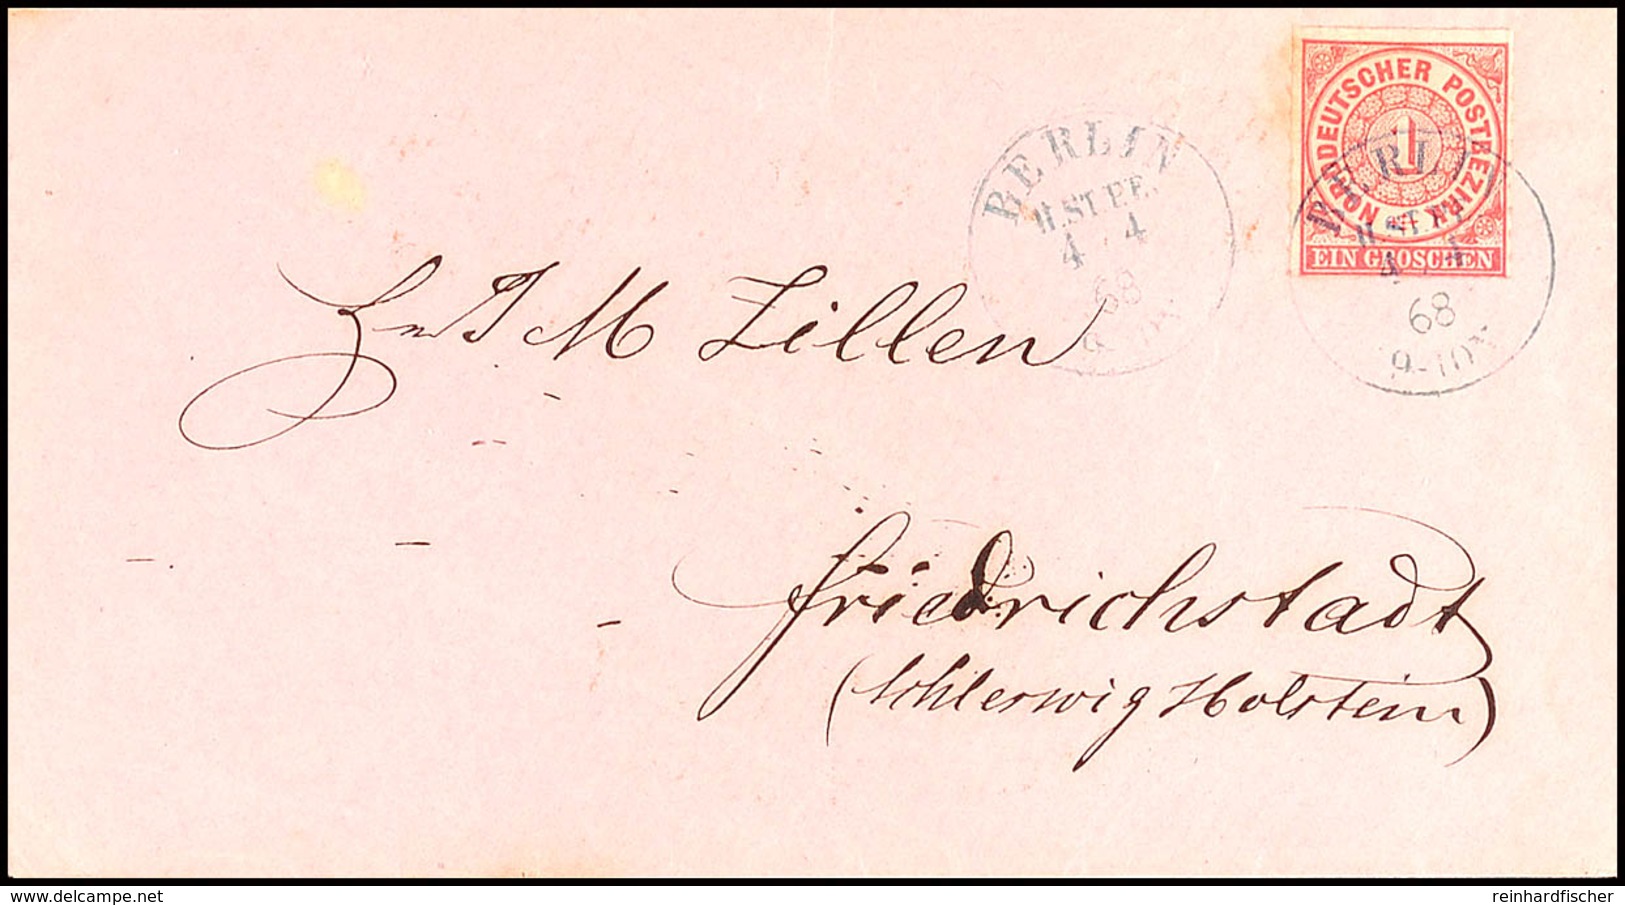 NORDDEUTSCHER POSTBEZIRK
1
EIN GROSCHEN
BERLIN
H.ST.P.E.
4 4
68
BERL
4 4
68
Hr. J M Zillen
Friedrichstadt
(Schleswig Holstein)
delcampe.net
reinhardfischer